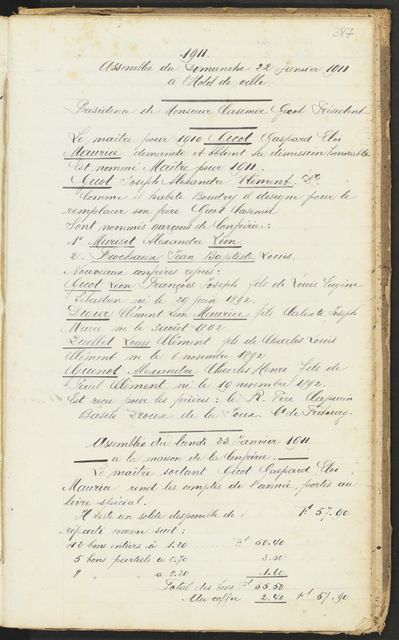 387
1911.
Assemblée du Dimanche 22 Janvier 1911
à l'Hôtel de ville.
Présidence de Monsieur Casimir Gicot Président
Le maître pour 1910 Gicot Gaspard Eloi
Maurice demande et obtient sa démission honorable
Est nommé Maître pour 1911.
Gicot Joseph Alexandre Clément, Dr.
Comme il habite Boudry il désigne pour le
remplacer son père Gicot Casimir
Sont nommés garçons de Confrérie :
1° Muriset Alexandre Léon.
2. Frochaux Jean Baptiste Louis.
Nouveaux confrères reçus :
Gicot Léon François Joseph fils de Louis Eugène
Sébastien né le 29 juin 1892.
Clément Léon Maurice fils Calixte Joseph
Marie né le 3 août 1892.
Quellet Louis Clément fils de Charles Louis
Clément né le 6 novembre 1892
Alexandre Charles Henri fils de
Paul Clément né le 19 novembre 1892.
Est reçu pour les prières : le R. Père Capucin
Basile de la Ct de Fribourg.
Assemblée du lundi 23 Janvier 1911
à la maison de la Confrérie.
Le maître sortant Gicot Gaspard Eloi
Maurice rend les comptes de l'année portés au
livre spécial.
Il reste un solde disponible de : Fs 57.90
réparti comme suit :
42 bons entiers à 1.20 Fs 50.40
5 bons partiels à 0.70 3.50
8 " à 0.20 1.60
Total des bons Fs 55.50
Au coffre 2.40 Fs 57.90